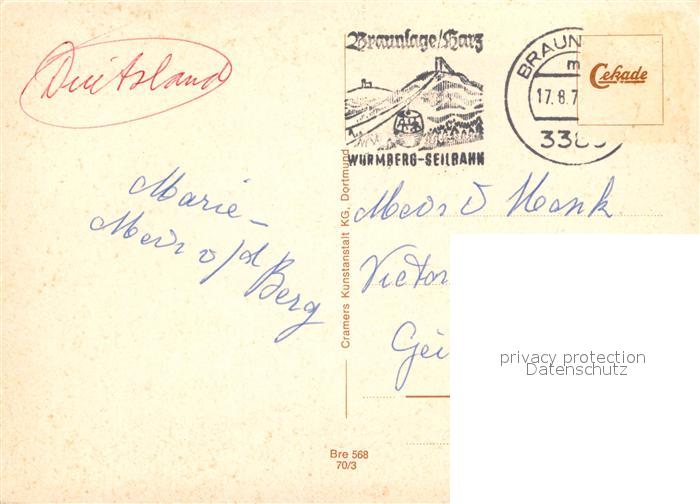 Duitsland
Braunlage/Harz
WURMBERG-SEILBAHN
BRAUN
m
17.8.7
338
Cekade
Marie-
Mevr v/d
Berg
Cramers Kunstanstalt KG, Dortmund
Mevr v Henk
Victor
Gei
privacy protection
Datenschutz
Bre 568
70/3